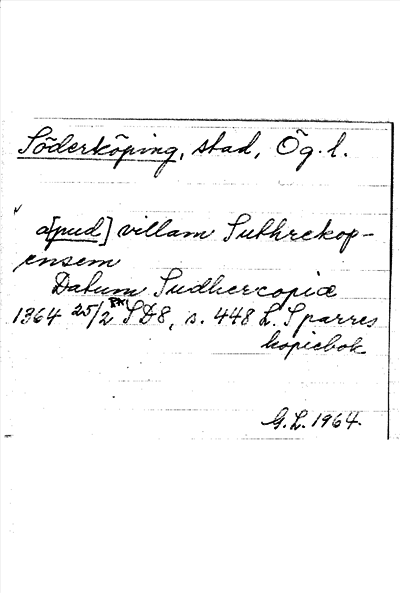 Söderköping, stad, Ög. l.
a[pud] villam Suthrekop-
ensem
Datum Sudhercopiæ
1364 25/2 SD8, s. 448 L. Sparres
kopiebok
G. L. 1964.